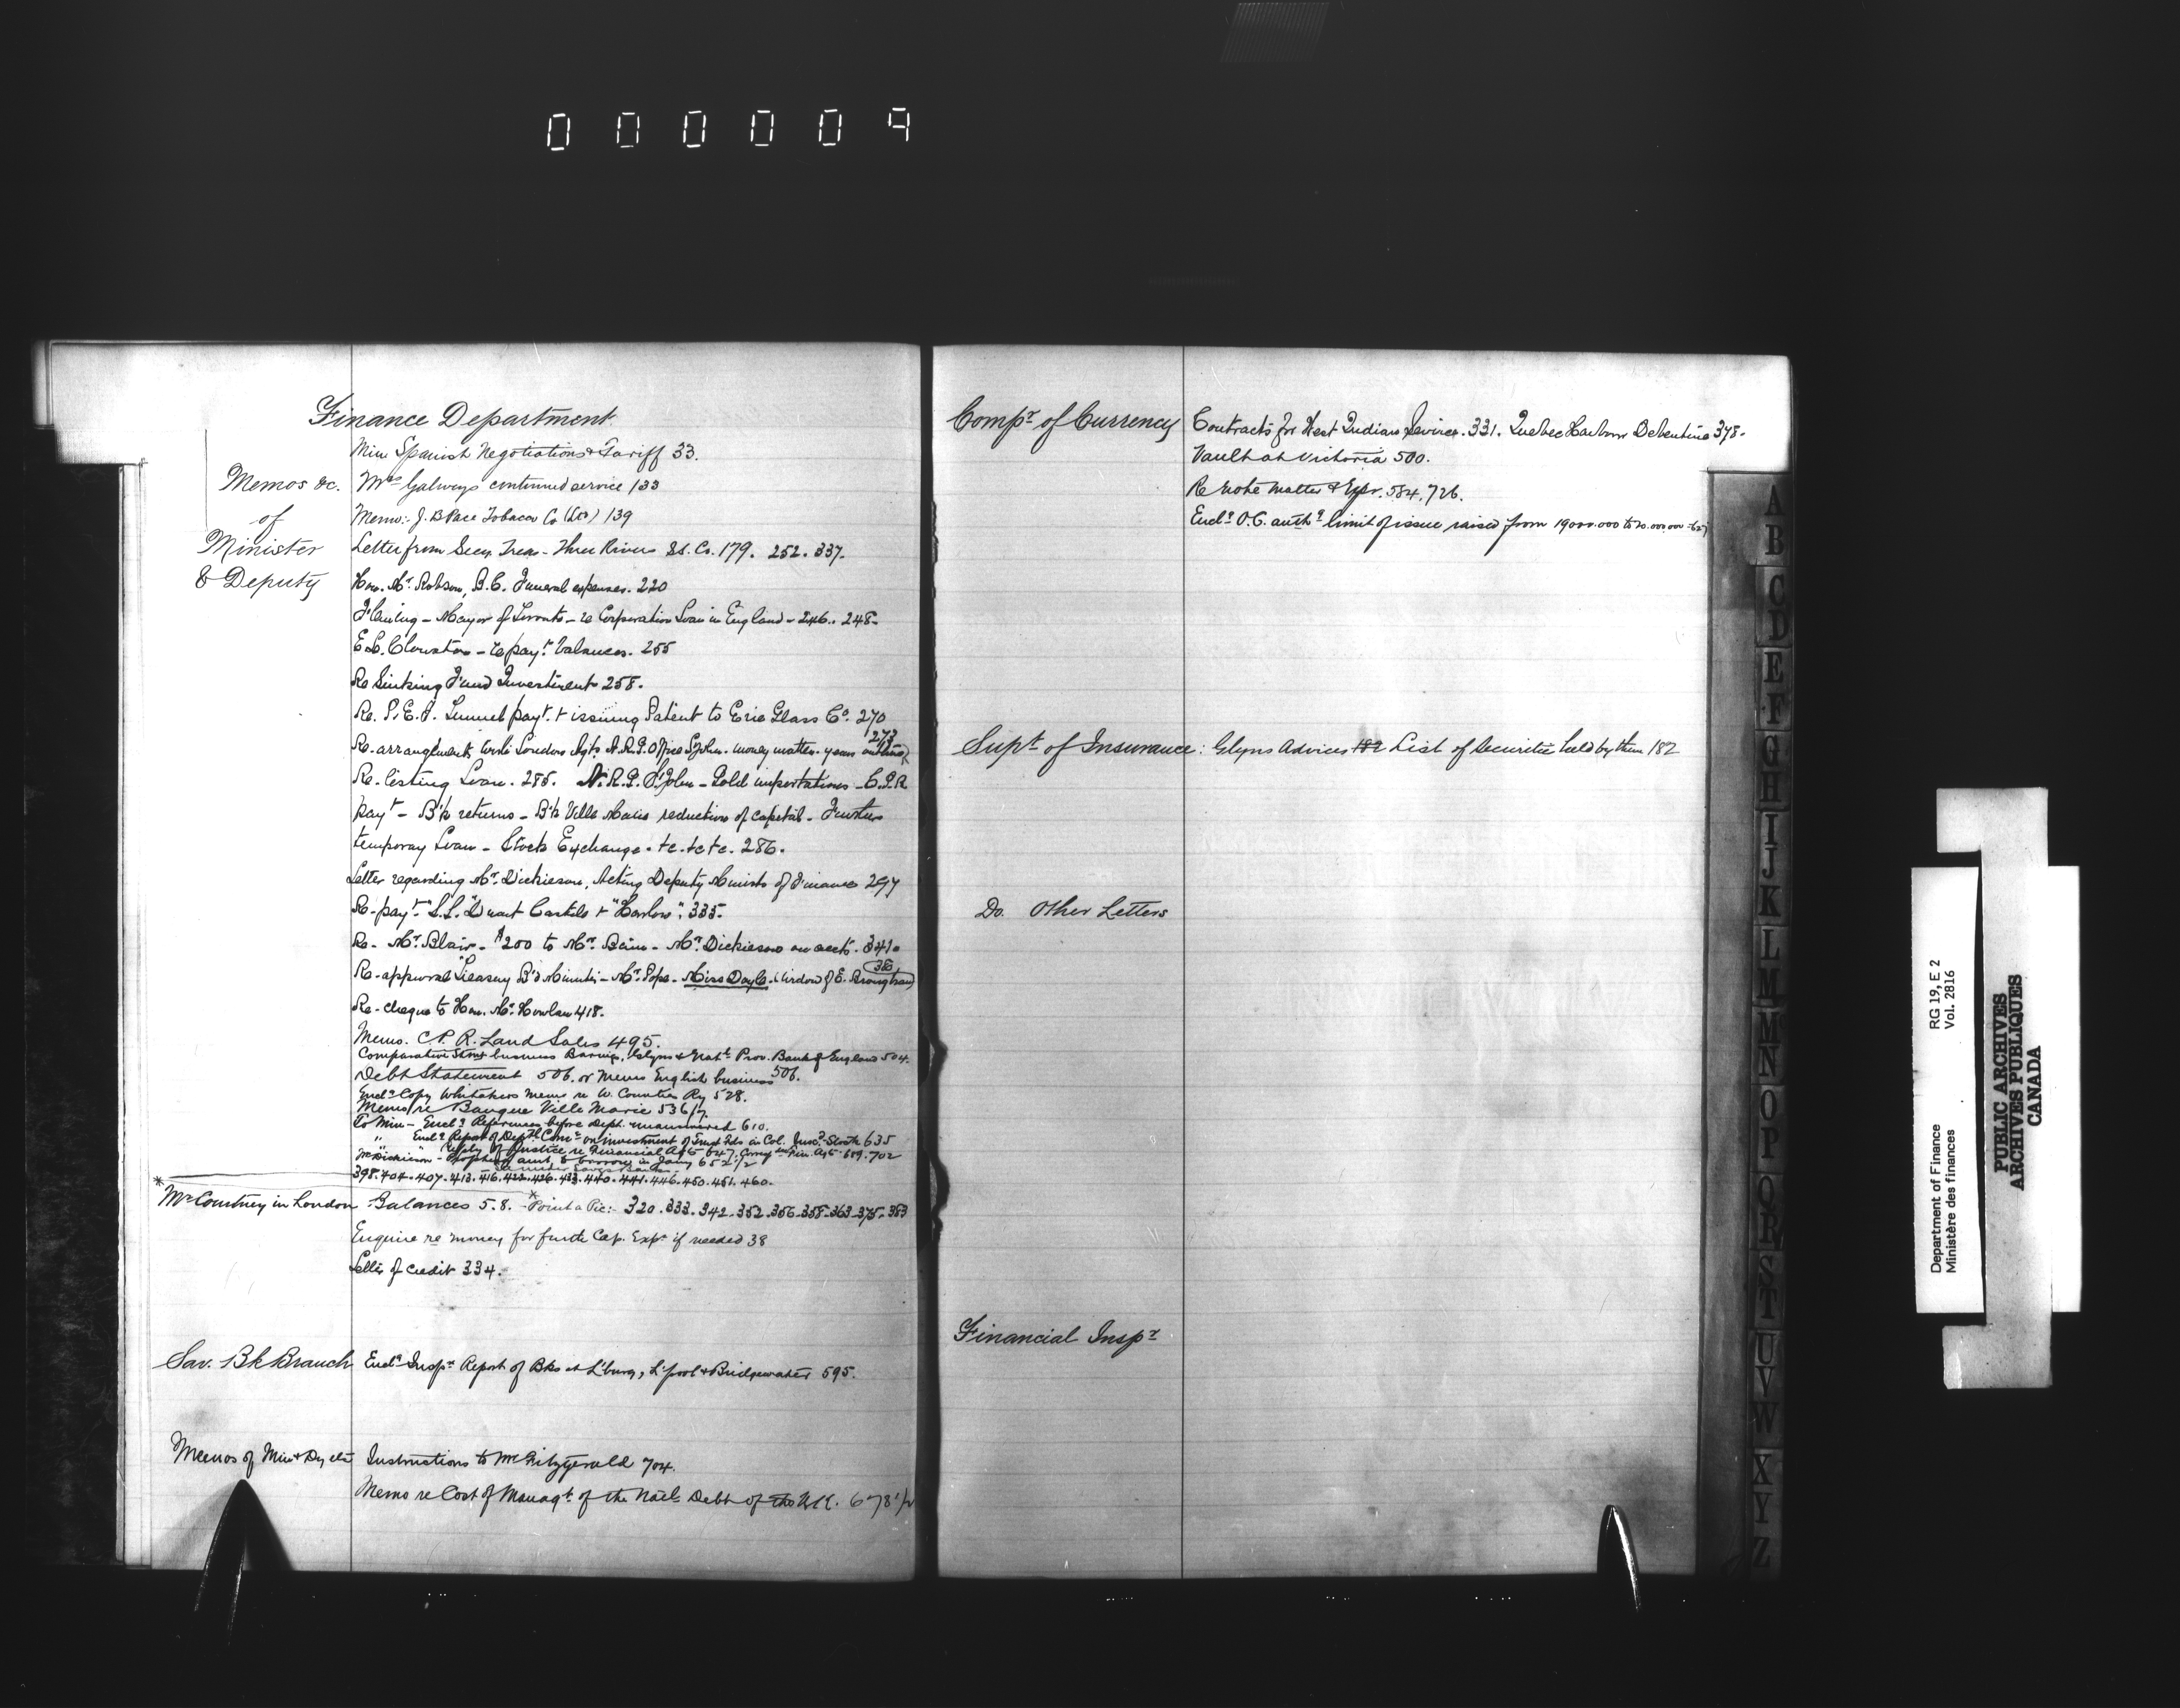 000009
Finance Department
Min Spanish Negotiations & Tariff 33.
Memos &c. of Minister & Deputy
Mrs Galways continued service 133
Memo: J. B Pace Tobacco Co (Ltd) 139
Letter from Secy. Treas - Three Rivers SS. Co. 179. 252. 337.
Hon. Mr. Robson, B.C. Funeral expenses. 220
Fleming - Mayor of Toronto - re Corporation Loan in England - 246. 248-
re payt. balances. 255
Re Sinking Fund Investment 258.
Re. P.E.I. Tunnel payt. + issuing Patent to Erie Glass Co. 270
273
Re-arrangements with London Agts A.R.G. Office St John. money matters. years
Re-listing Loan. 285. A.R.G. St John - Gold importations - C.P.R
payt - B'k returns - B'k Ville Marie reduction of capital - Further
temporary Loan - Stock Exchange. &c. &c &c. 286.
Letter regarding Mr. Dickieson, Acting Deputy Minister of Finance 297
Re-payt. "S.S. "Duart Castle & "Harlow". 335.
Re- Mr. Blair - $200 to Mr. - Mr. Dickieson on acct. 341.
Re-approval Treasury B'd Minutes - Mr. Pope - Miss Doyle. (widow of E.
Re-cheque to Hon. Mr. Howlan 418.
Memo. C.P.R. Land Sales 495.
Comparative Stmt business Barings, Glyns & Natl. Prov. Bank of England 504.
Debt Statement 506. or Memo English business 506.
Encl. Copy Whitakers memo re W. Counties Ry 528.
Memo re Banque Ville Marie 536 1/2
To Min - Encl. References before Dept. unanswered 610.
" Encl. Report of Dept. on investment of Trust Fds in Col. Insc. Stock 635
Reply of Justice re Financial Agts 647. Fin. Agts 689. 702
Mr Dickieson - amt. to borrow in Jany 652 1/2
398. 404. 407. 413. 416. 422. 426. 433. 440. 441. 446. 450. 451. 460.
* Mr Courtney in London Balances 5.8. * 320. 333. 342. 352. 356. 358. 363. 375. 383
Enquire re money for further Cap. Expr if needed 38
Letter of credit 334.
Sav. Bk Branch Encl. Inspr Report of Bks at L'burg, L'pool & Bridgewater 595.
Memos of Min & Dy Instructions to Mr Fitzgerald 704.
Memo re Cost of Managt. of the Natl. Debt of the U.K. 678 1/2
Compr of Currency Contracts for West Indian Service. 331. Quebec Harbour Debenture 378.
Vault at Victoria 500.
Re note matter & Expr. 584, 726.
Encl. O.C. auth. limit of issue raised from 19000.000 to 20.000.000
Supt of Insurance: Glyns Advices 182 List of Securities held by them 182
Do. Other Letters
Financial Inspr
A
B
C
D
E
F
G
H
I
J
K
L
M
N
O
P
Q
R
S
T
U
V
W
X
Y
Z
Department of Finance
Ministère des finances
RG 19, E 2
Vol. 2816
PUBLIC ARCHIVES
ARCHIVES PUBLIQUES
CANADA